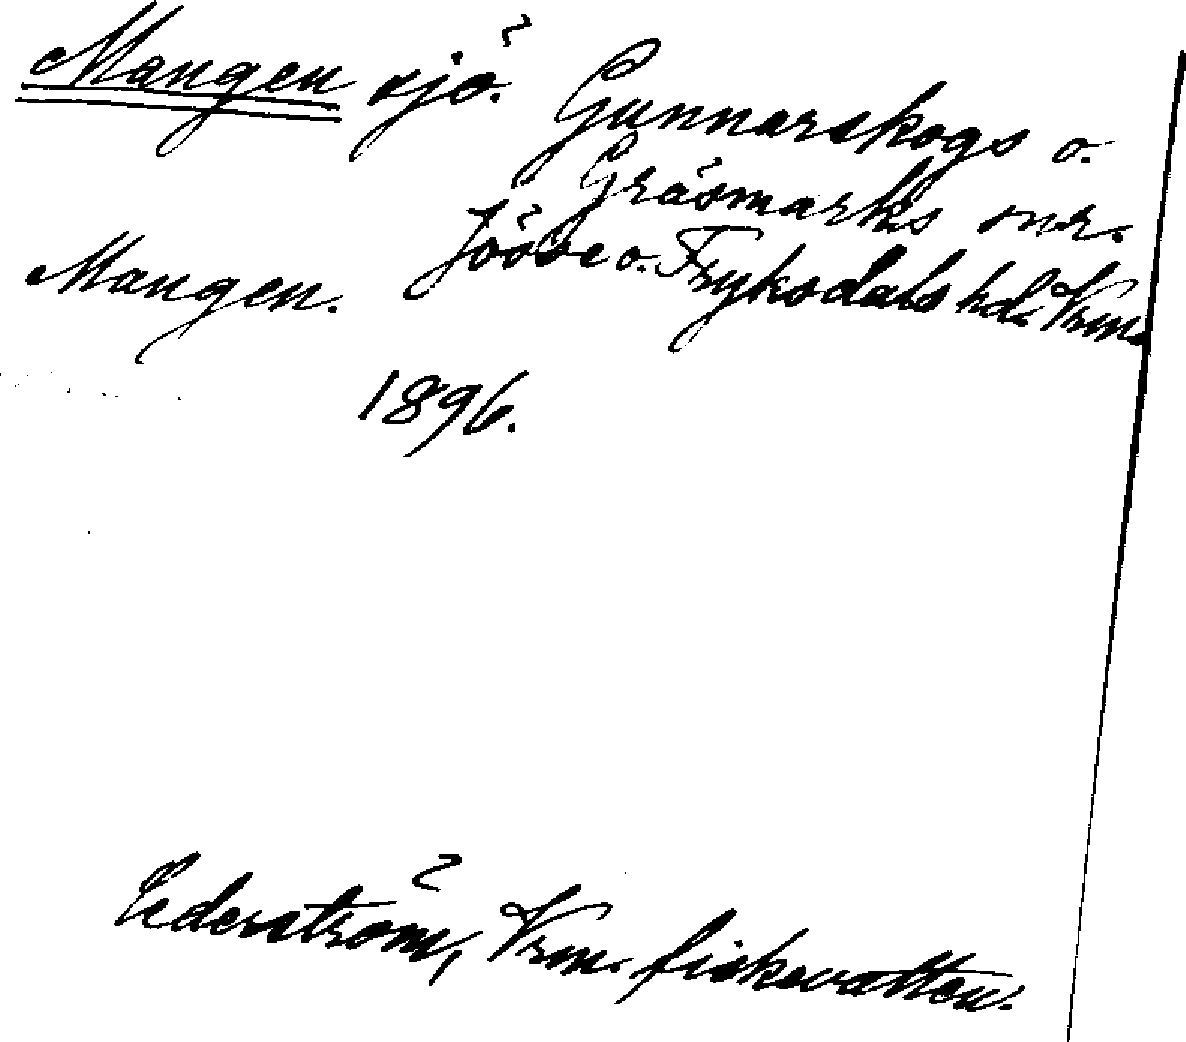 Mangen sjö. Gunnarskogs o.
Gräsmarks snr.
Jösse o. Fryksdals hd. Vrm.
Mangen.
1896.
Cederström, Vrm. fiskevatten.